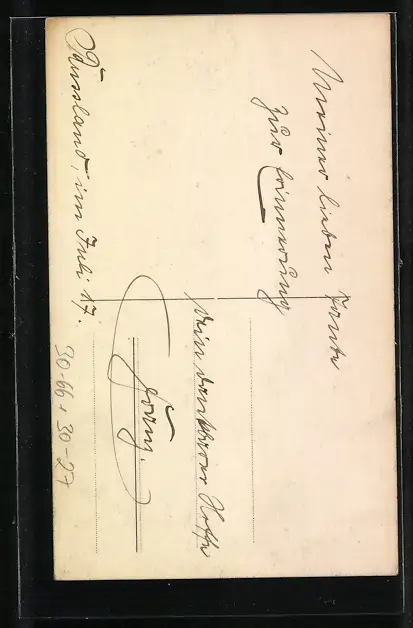 Meiner lieben Tante
zur Erinnerung
dein dankbarer Neffe
Georg.
Russland, im Juli 17.
30-66 + 30-27